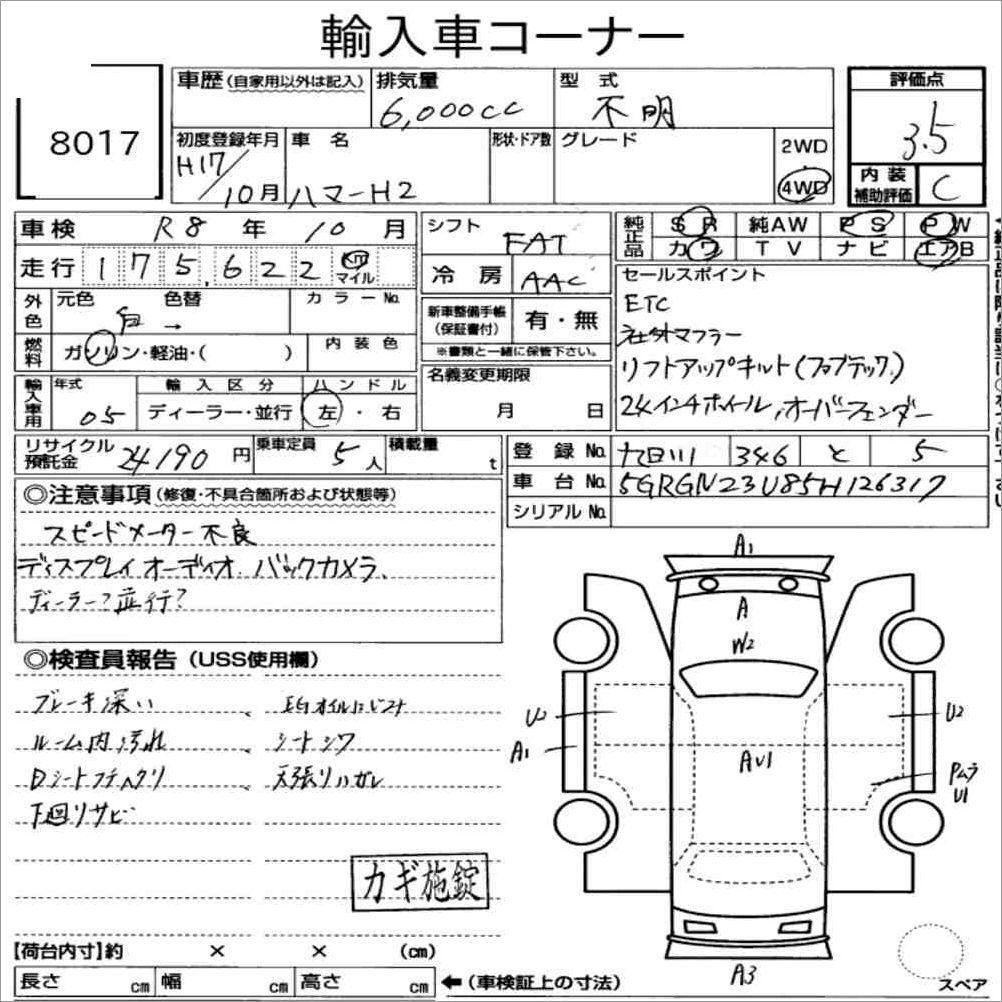 輸入車コーナー
8017
車歴(自家用以外は記入) 排気量 6,000cc 型式 不明 評価点 3.5
初度登録年月 H17/10月 車名 ハマーH2 形状・ドア数 グレード 2WD 4WD 内装補助評価 C
車検 R8年 10月 シフト FAT 純正品 SR 純AW PS PW
カワ TV ナビ エアB
走行 175,622 km マイル 冷房 AAC
セールスポイント
ETC
社外マフラー
リフトアップキット(ファブテック)
24インチホイール,オーバーフェンダー
外色 元色 白→ 色替 カラーNo.
新車整備手帳(保証書付) 有・無
※書類と一緒に保管下さい。
燃料 ガソリン・軽油・( ) 内装色
名義変更期限 月 日
輸入車用 年式 05 輸入区分 ディーラー・並行 ハンドル 左・右
リサイクル預託金 24190円 乗車定員 5人 積載量 t
登録No. 346 と 5
車台No. 5GRGN23U85H126317
シリアルNo.
◎注意事項(修復・不具合箇所および状態等)
スピードメーター不良
ディスプレイオーディオ.バックカメラ.
ディーラー?並行?
◎検査員報告(USS使用欄)
ブレーキ深い、EGオイルにじみ
ルーム内汚れ、シートシワ
Dシートフチヘタリ、天張りハガレ
下廻りサビ
カギ施錠
A1
A
W2
U2
U2
A1
AU1
Pムラ
U1
A3
スペア
【荷台内寸】約 × × (cm)
長さ cm 幅 cm 高さ cm ←(車検証上の寸法)